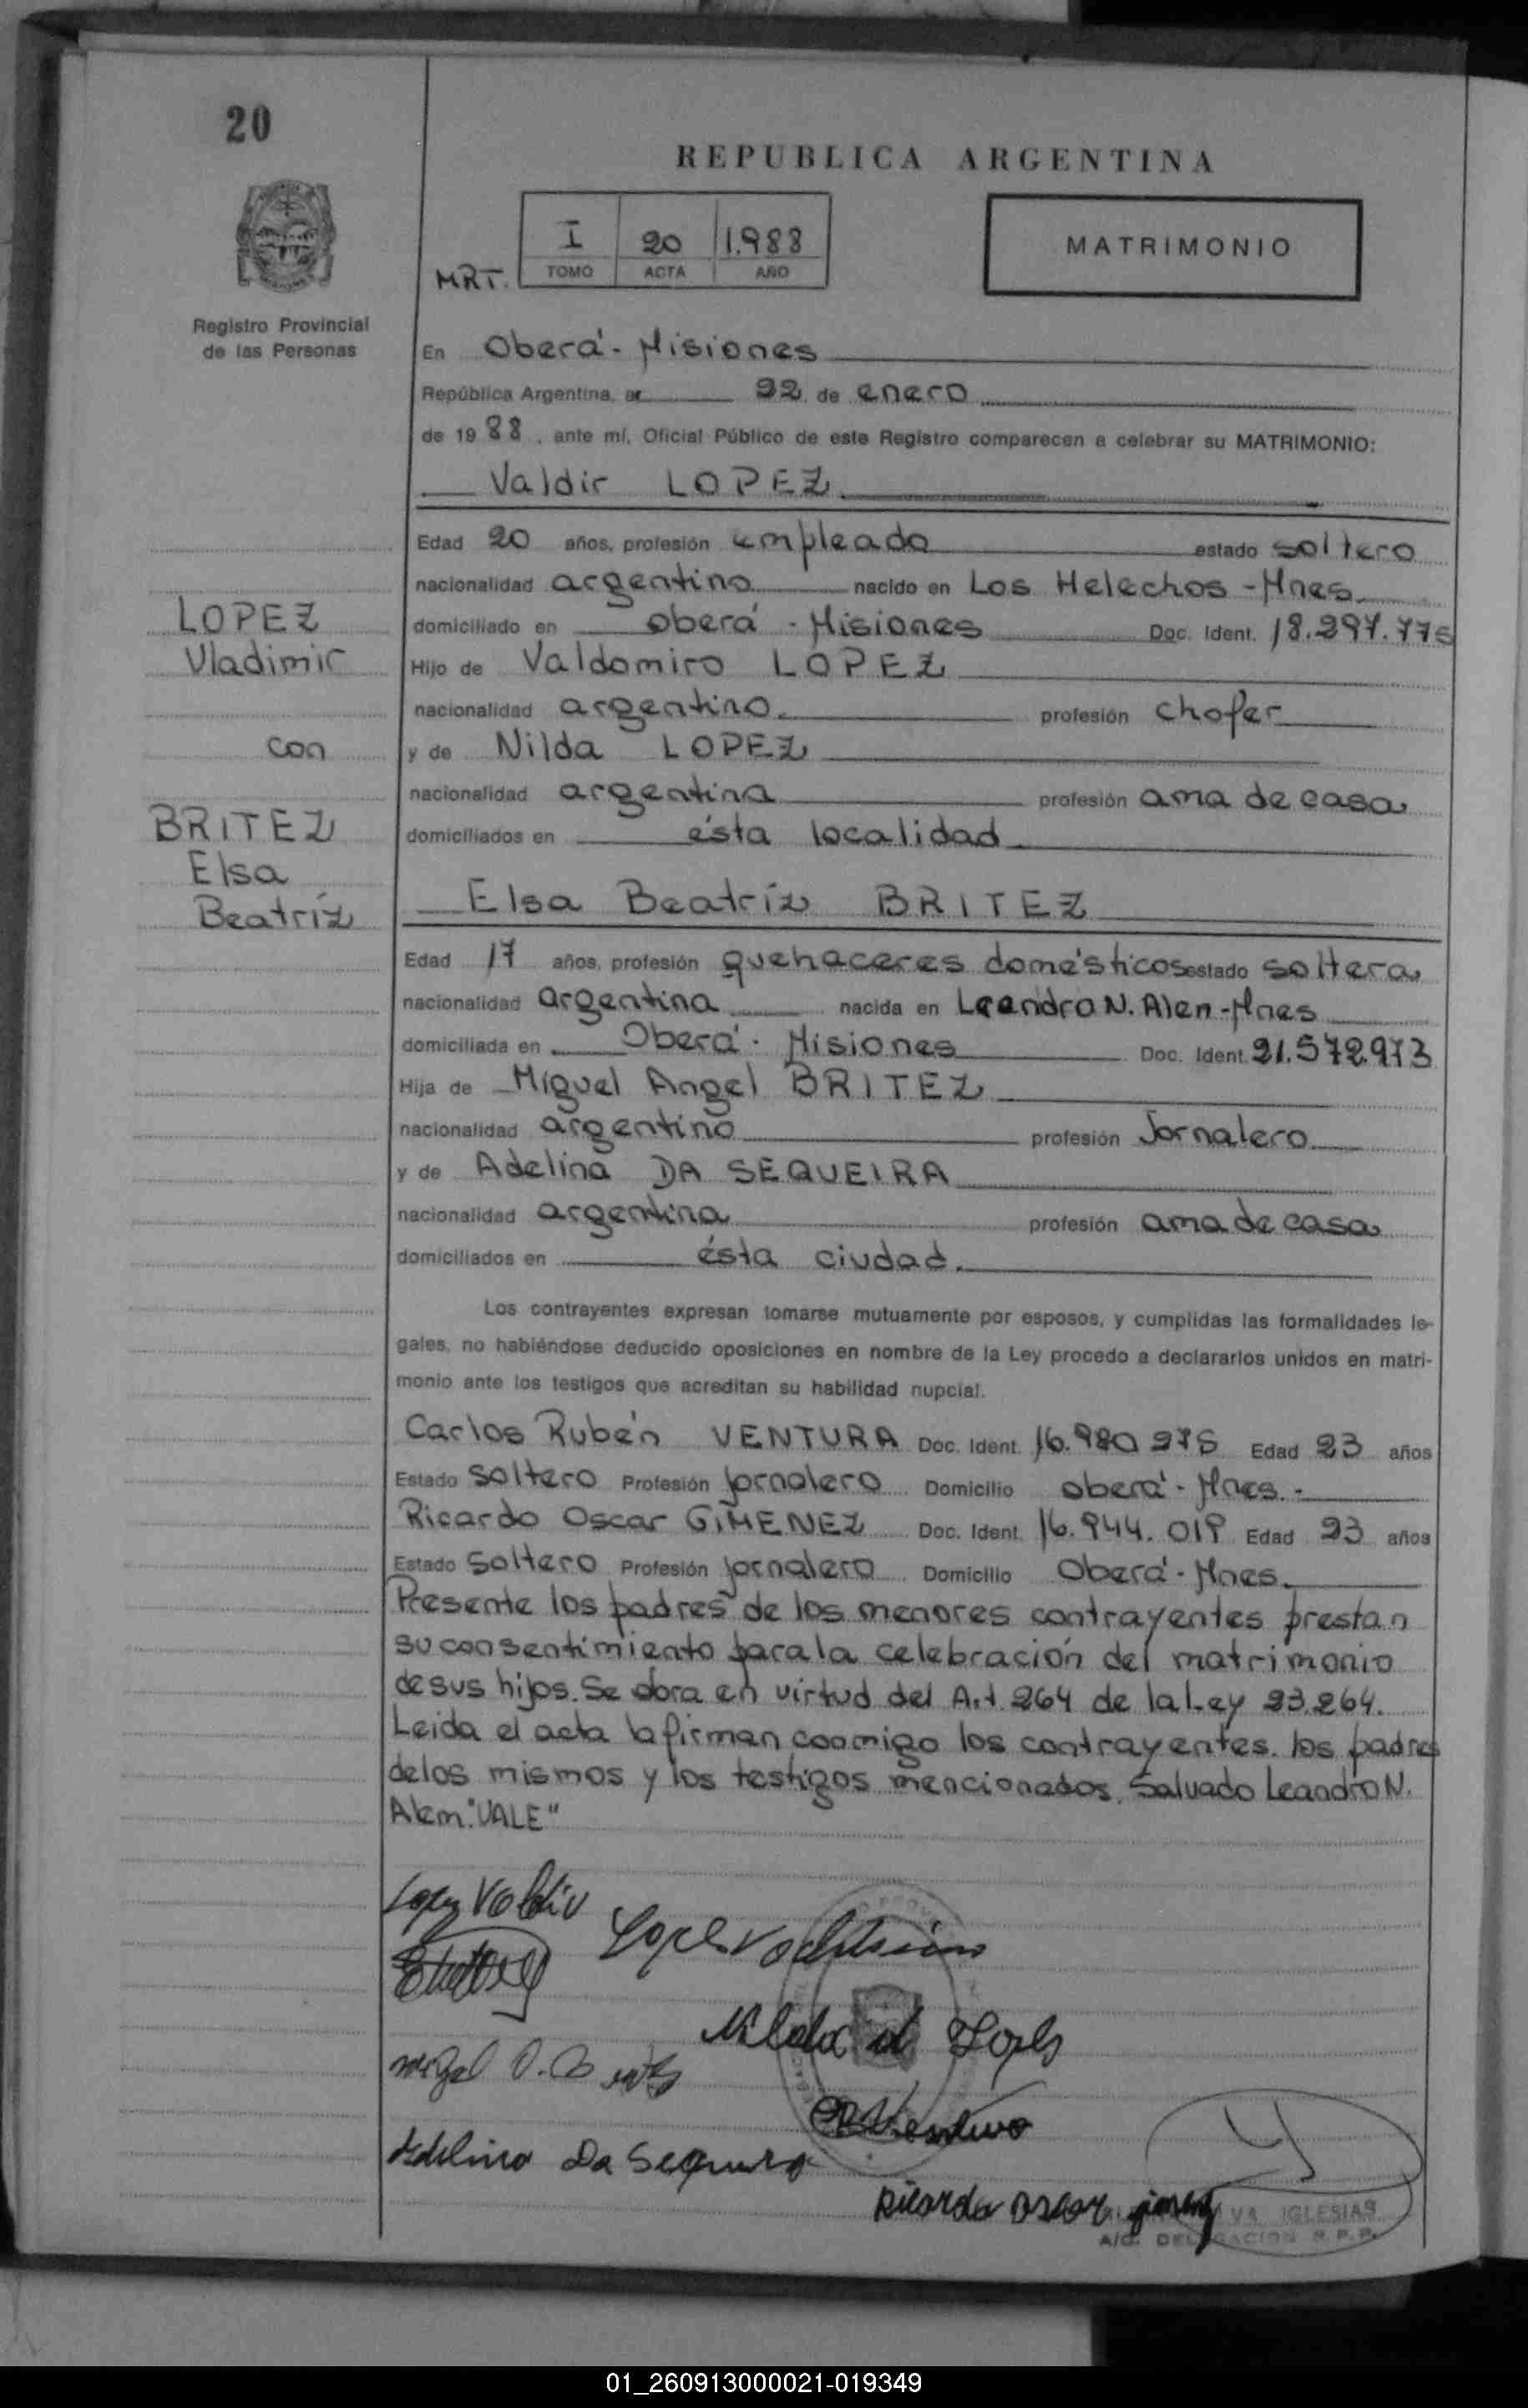 20
REPUBLICA ARGENTINA
I 20 1.988
MRT. TOMO ACTA AÑO
MATRIMONIO
Registro Provincial
de las Personas
En Oberá - Misiones
República Argentina, a 22 de enero
de 1988, ante mí, Oficial Público de este Registro comparecen a celebrar su MATRIMONIO:
Valdir LOPEZ
Edad 20 años, profesión empleado estado soltero
nacionalidad argentino nacido en Los Helechos - Mnes
domiciliado en Oberá - Misiones Doc. Ident. 18.297.775
Hijo de Valdomiro LOPEZ
nacionalidad argentino. profesión chofer
y de Nilda LOPEZ
nacionalidad argentina profesión ama de casa
domiciliados en ésta localidad
LOPEZ
Vladimir
con
BRITEZ
Elsa
Beatríz
Elsa Beatríz BRITEZ
Edad 17 años, profesión quehaceres domésticos estado soltera
nacionalidad argentina nacida en Leandro N. Alen - Mnes
domiciliada en Oberá - Misiones Doc. Ident. 21.572.973
Hija de Miguel Angel BRITEZ
nacionalidad argentino profesión Jornalero
y de Adelina DA SEQUEIRA
nacionalidad argentina profesión ama de casa
domiciliados en ésta ciudad.
Los contrayentes expresan tomarse mutuamente por esposos, y cumplidas las formalidades le-
gales, no habiéndose deducido oposiciones en nombre de la Ley procedo a declararlos unidos en matri-
monio ante los testigos que acreditan su habilidad nupcial.
Carlos Rubén VENTURA Doc. Ident. 16.980 975 Edad 23 años
Estado soltero Profesión jornalero Domicilio Oberá - Mnes. -
Ricardo Oscar GIMENEZ Doc. Ident. 16.944.019 Edad 23 años
Estado soltero Profesión jornalero Domicilio Oberá - Mnes.
Presente los padres de los menores contrayentes prestan
su consentimiento para la celebración del matrimonio
de sus hijos. Se obra en virtud del Art. 264 de la Ley 23.264.
Leida el acta la firman conmigo los contrayentes. los padres
de los mismos y los testigos mencionados. Salvado Leandro N.
Alem. "VALE"
Lopez Valdir
Lopes Valdomiro
Nilda d Lopes
Adelina Da Sequera
Ricardo Oscar Gimenez
IGLESIAS
A/C. DELEGACION R.P.P.
01_260913000021-019349